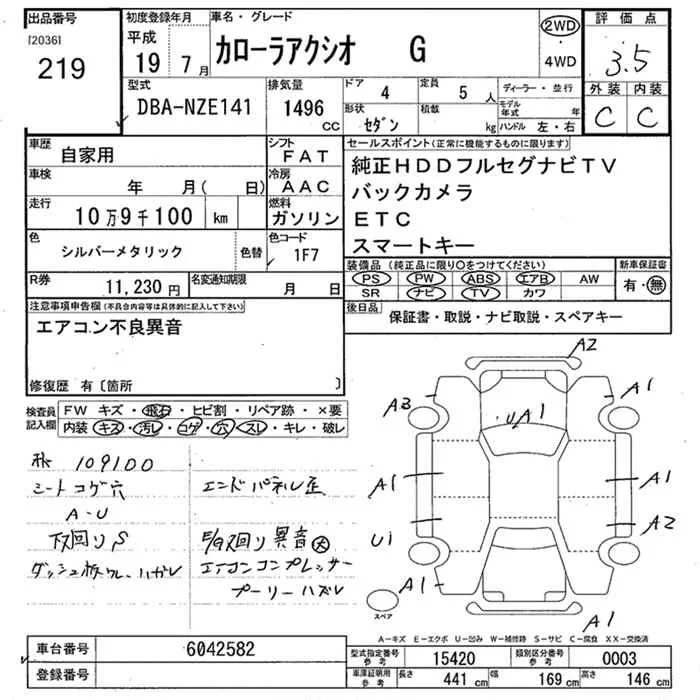 出品番号 初度登録年月 車名・グレード 評価点
[2036] 平成 2WD
219 19 7月 カローラアクシオ G ・ 3.5
4WD
型式 排気量 ドア 4 定員 5人 ディーラー・並行 外装 内装
DBA-NZE141 1496 CC 形状 セダン 積載 kg モデル年式 年 C C
ハンドル 左・右
車歴 自家用 シフト FAT セールスポイント(正常に機能するものに限ります)
車検 年 月( 日) 冷房 AAC 純正HDDフルセグナビTV
走行 10万9千100 km 燃料 ガソリン バックカメラ
ETC
色 シルバーメタリック 色替 色コード 1F7 スマートキー
装備品(純正品に限り○をつけてください) 新車保証書
R券 11,230円 名変通知期限 月 日 PS PW ABS エアB AW 有・無
SR ナビ TV カワ
注意事項申告欄(不具合内容等は具体的に記入して下さい) 後日品 保証書・取説・ナビ取説・スペアキー
エアコン不良異音
修復歴 有〔箇所 〕
検査員記入欄 FW キズ・飛石・ヒビ割・リペア跡・×要
内装 キズ・汚レ・コゲ・穴・スレ・キレ・破レ
109100
シートコゲ穴 エンドパネル歪
A-U
下回りS 異音大
エアコンコンプレッサー
プーリーハズレ
A2
A3 A1
UA1
A1 A1
U1 A2
A1
A1
スペア
A-キズ E-エクボ U-凹み W-補修跡 S-サビ C-腐食 XX-交換済
車台番号 6042582 型式指定番号 参考 15420 類別区分番号 参考 0003
登録番号 車庫証明用 参考 長さ 441 cm 幅 169 cm 高さ 146 cm